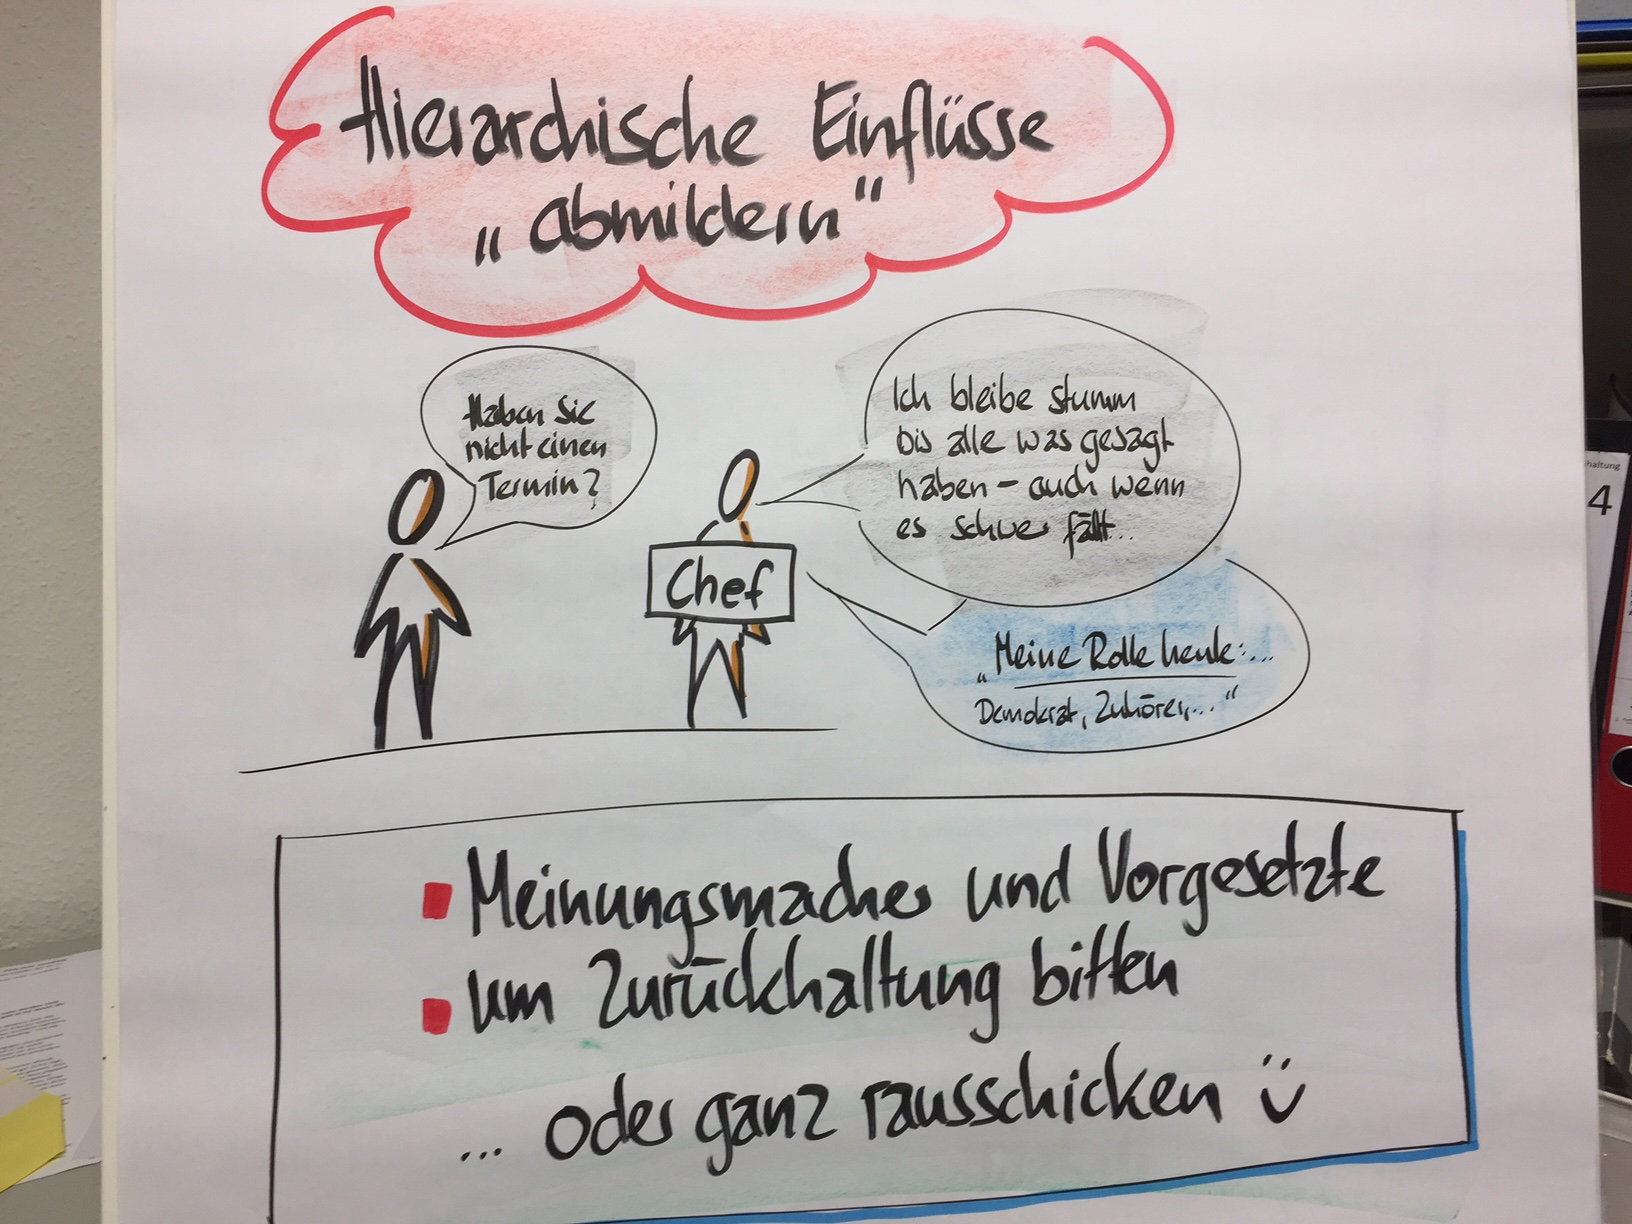 Hierarchische Einflüsse
„abmildern“
Haben Sie
nicht einen
Termin?
Ich bleibe stumm
bis alle was gesagt
haben – auch wenn
es schwer fällt...
Chef
„Meine Rolle heute:...
Demokrat, Zuhörer,...“
▪ Meinungsmacher und Vorgesetzte
▪ um Zurückhaltung bitten
... oder ganz rausschicken ü
haltung
4